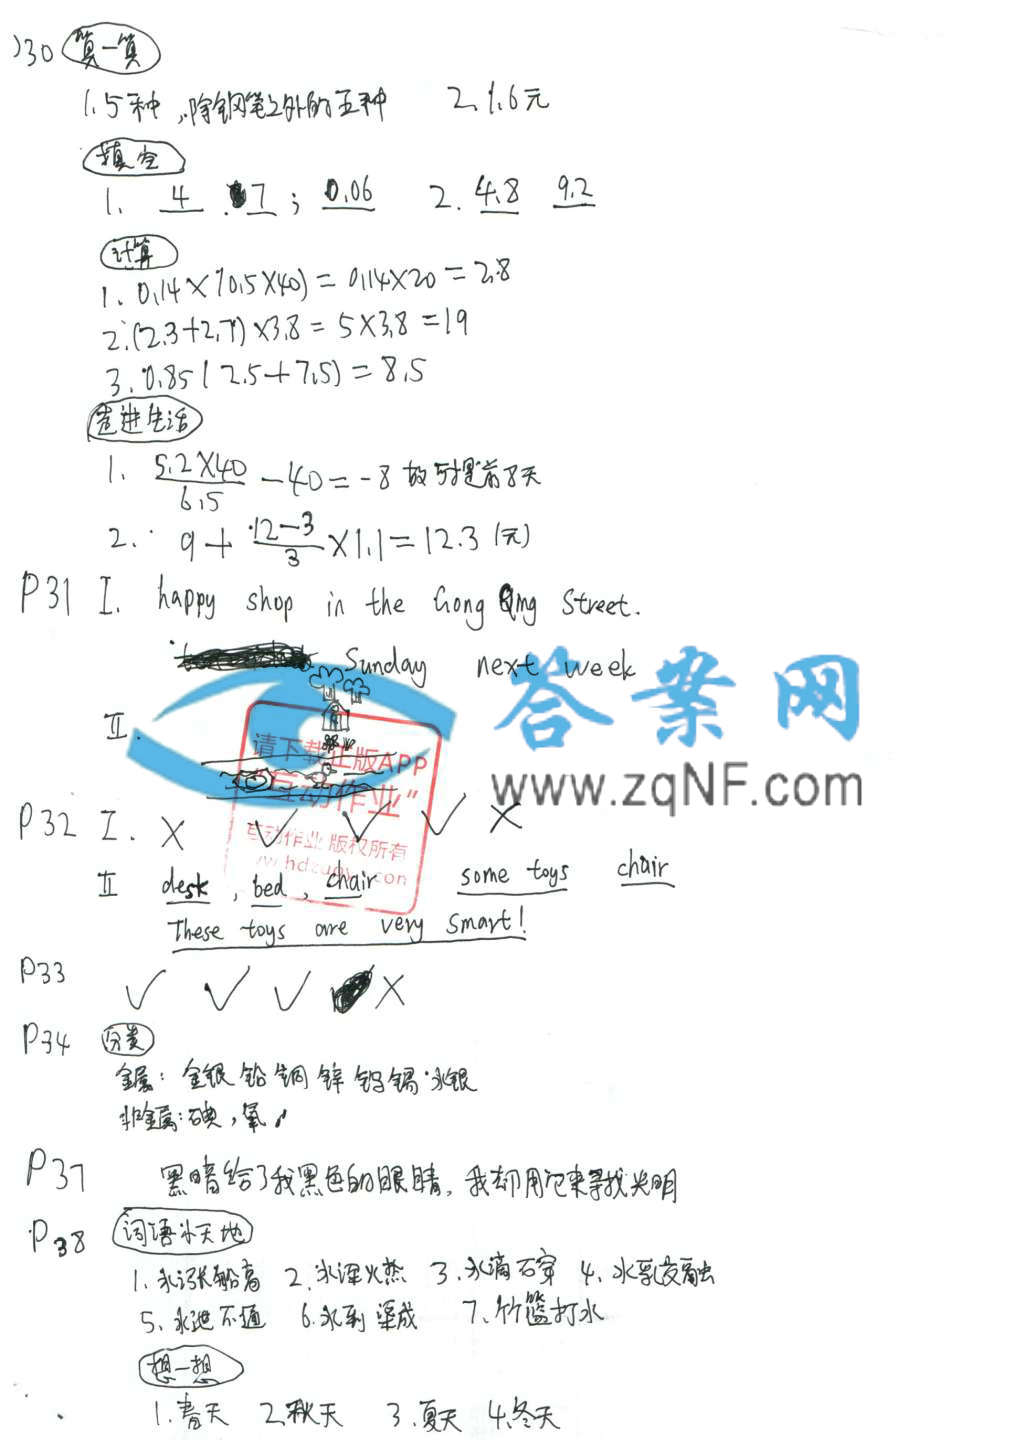 P30 算一算
1. 5种,除钢笔之外的五种 2. 1.6元
填空
1. 4 7; 0.06 2. 4.8 9.2
计算
1. 0.14×(0.5×40)=0.14×20=2.8
2. (2.3+2.7)×3.8=5×3.8=19
3. 0.85(2.5+7.5)=8.5
走进生活
1. 5.2×40/6.5-40=-8 故可提前8天
2. 9+12-3/3×1.1=12.3(元)
P31 I. happy shop in the Gong Qing Street.
Sunday next week
II.
答案网
请下载正版APP
"互动作业"
www.zqNF.com
P32 I. × ✓ ✓ ✓ ×
互动作业 版权所有
II desk, bed, chair some toys chair
These toys are very smart!
P33 ✓ ✓ ✓ ×
P34 分类
金属: 金银铅铜锌钨锡水银
非金属:碘,氧
P37 黑暗给了我黑色的眼睛,我却用它来寻找光明
P38 词语小天地
1. 水涨船高 2. 水深火热 3. 水滴石穿 4. 水乳交融
5. 水泄不通 6. 水到渠成 7. 竹篮打水
想一想
1. 春天 2. 秋天 3. 夏天 4. 冬天